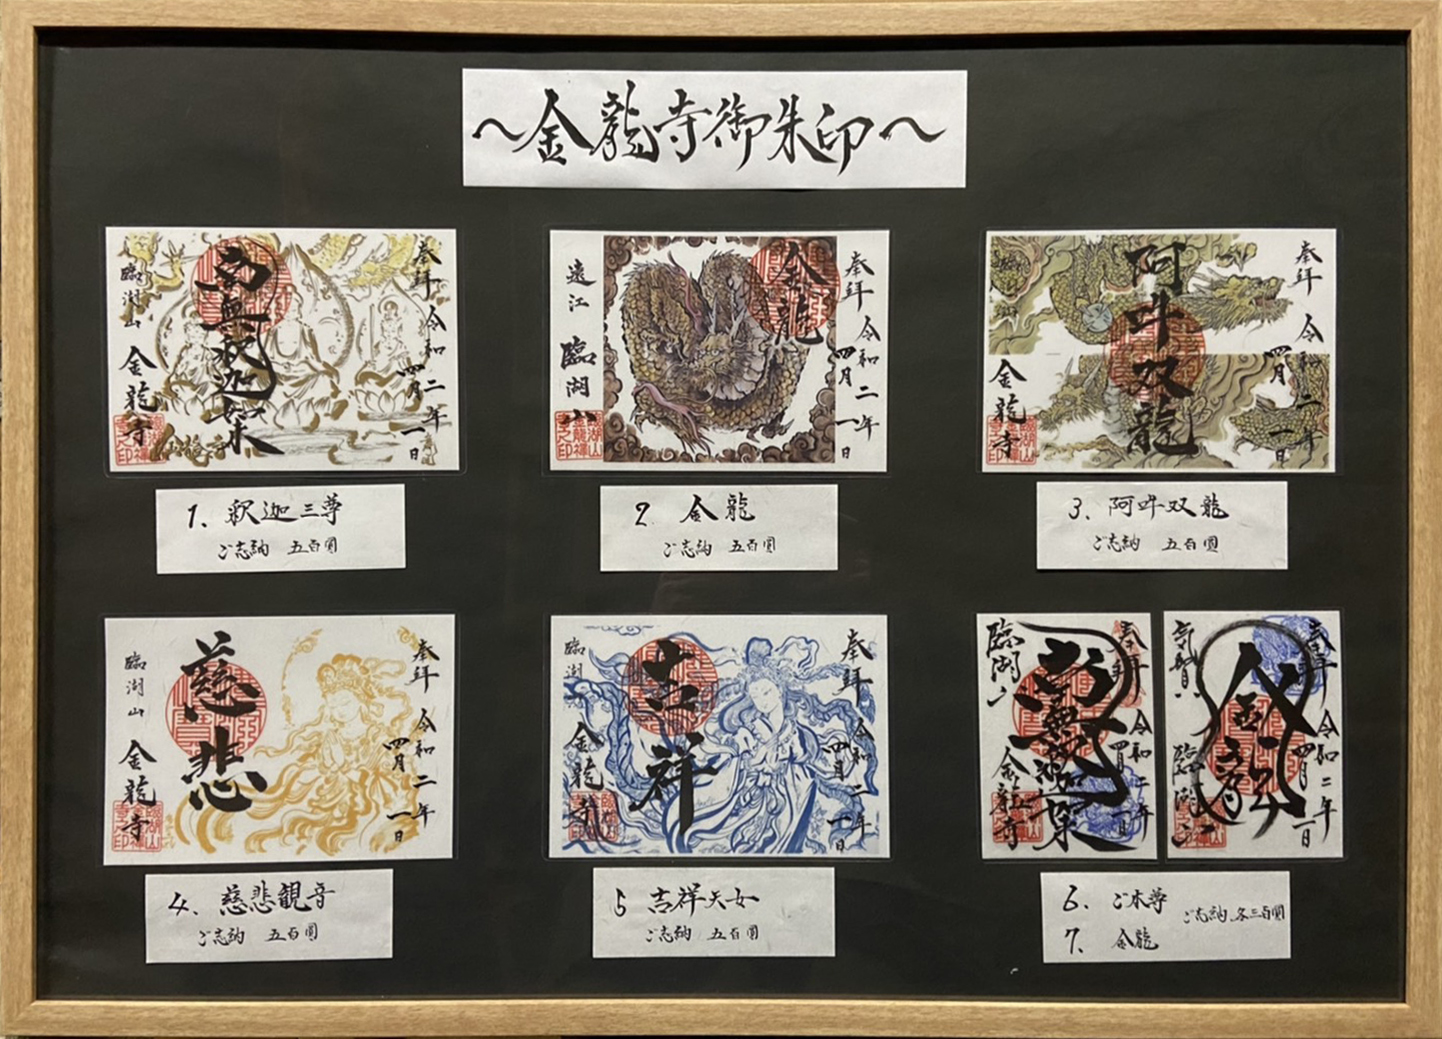 ～金龍寺御朱印～
奉拝
令和二年
四月一日
南無釈迦如来
臨湖山
金龍寺
1、釈迦三尊
ご志納 五百圓
奉拝
令和二年
四月一日
金龍
遠江
臨湖山
2 金龍
ご志納 五百圓
奉拝
令和二年
四月一日
阿吽双龍
金龍寺
3、阿吽双龍
ご志納 五百圓
奉拝
令和二年
四月一日
慈悲
臨湖山
金龍寺
4、慈悲観音
ご志納 五百圓
奉拝
令和二年
四月一日
吉祥
臨湖山
金龍寺
5 吉祥天女
ご志納 五百圓
奉拝
令和二年
四月一日
南無釈迦如来
臨湖山
金龍寺
奉拝
令和二年
四月一日
金龍
気賀
臨湖山
6、ご本尊
7、金龍
ご志納 各三百圓